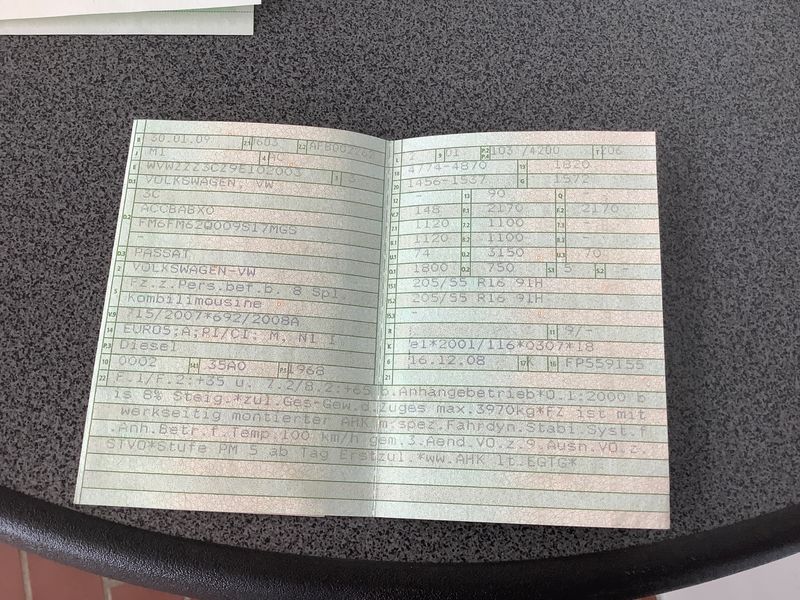 B 30.01.09 2.1 0603 2.2
J M1 4 AC
E WVWZZZ3CZ9E102003 3
D.1 VOLKSWAGEN, VW
3C
D.2 ACCBABX0
FM6FM62Q009S17MGS
-
D.3 PASSAT
2 VOLKSWAGEN-VW
5 Fz.z.Pers.bef.b. 8 Spl.
Kombilimousine
V.9 715/2007*692/2008A
14 EURO5;A;PI/CI: M, N1 I
P.3 Diesel
10 0002 14.1 35A0 P.1 1968
L 2 9 01 P.2 P.4 103 /4200 T 206
18 4774-4870 19 1820
20 1456-1537 G 1572
12 - 13 90 Q -
V.7 148 F.1 2170 F.2 2170
7.1 1120 7.2 1100 7.3 -
8.1 1120 8.2 1100 8.3 -
U.1 74 U.2 3150 U.3 70
O.1 1800 O.2 750 S.1 5 S.2 -
15.1 205/55 R16 91H
15.2 205/55 R16 91H
15.3 -
R - 11 9/-
K e1*2001/116*0307*18
6 16.12.08 17 K 16 FP559155
21
22 F.1/F.2:+35 u. 7.2/8.2:+65 b.Anhängebetrieb*O.1:2000 b
is 8% Steig.*zul.Ges-Gew.d.Zuges max.3970kg*FZ ist mit
werkseitig montierter AHK m.spez.Fahrdyn.Stabi.Syst.f
.Anh.Betr.f.Temp.100 km/h gem.3.Aend.VO.z.9.Ausn.VO.z.
STVO*Stufe PM 5 ab Tag Erstzul.*ww.AHK lt.EGTG*